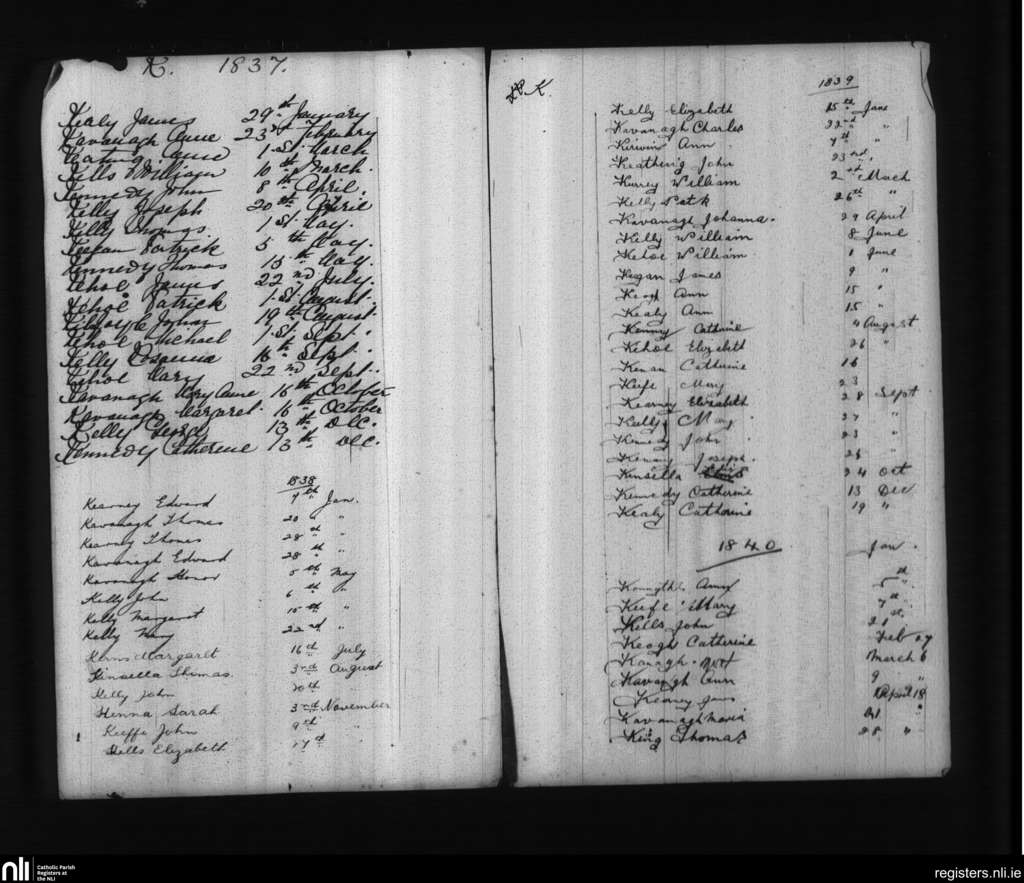 K. 1837.
Kealy James 29th January
Kavanagh Anne 23rd February
Keating Anne 1st March
Kells William 10th March.
Kennedy John 8th April.
Kelly Joseph 20th April
Kelly Thomas 1st May.
Keefan Patrick 5th May.
Kennedy Thomas 15th May.
Kehoe James 22nd July.
Kehoe Patrick 1st August.
Johns 19th August.
Kehoe Michael 1st Sept.
Kelly Rosanna 16th Sept.
Kehoe Mary 22nd Sept.
Kavanagh Mary Anne 16th October
Kavanagh Margaret. 16th October
Kelly 13th Dec.
Kennedy Catherene 13th Dec.
1838
Kearney Edward 7th Jan.
Kavanagh Thomas 20 " "
Kearney Thomas 28th "
Kavanagh Edward 28th "
Kavanagh Honor 5th May
Kelly John 6th "
Kelly Margaret 15th "
Kelly Mary 22nd "
Kerns Margaret 16th July
Kinsella Thomas. 3rd August
Kelly John 20th
Henna Sarah 3rd November
Keeffe John 9th "
Kells Elizabeth 27th "
K.
1839
Kelly Elizabeth 15th Jane
Kavanagh Charles 22nd "
Kirwin Ann 7th "
Keathering John 23rd "
Kurrey William 2nd March
Kelly Patk 26th "
Kavanagh Johanna. 29 April
Kelly William 8 June
Kehoe William 1 June
Keegan James 9 "
Keogh Ann 15 "
Kealy Ann 15 "
Kenny Cathrine 4 August
Kehoe Elizabeth 26 "
Keenan Catherine 16
Keefe Mary 23
Kearney Elizabeth 28 Sept
Kelly Mary 27 "
Kennedy John 23 "
Kenny Joseph. 26 "
Kinsella 24 Oct
Kennedy Catherine 13 Dec
Kealy Catherine 19 "
1840
Jan.
Amy 5th "
Keefe Mary 7th "
Kells John 21st
Keogh Catherine Feb 27
Kavagh March 6
Kavanagh Ann 9 "
Kearney Jas April 18
Kavanagh Maria 21 "
King Thomas 28 "
nli Catholic Parish
Registers at
the NLI
registers.nli.ie